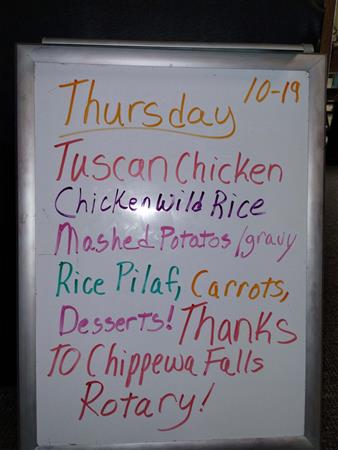 Thursday 10-19
Tuscan Chicken
Chicken Wild Rice
Mashed Potatos/gravy
Rice Pilaf, Carrots,
Desserts! Thanks
TO Chippewa Falls
Rotary!